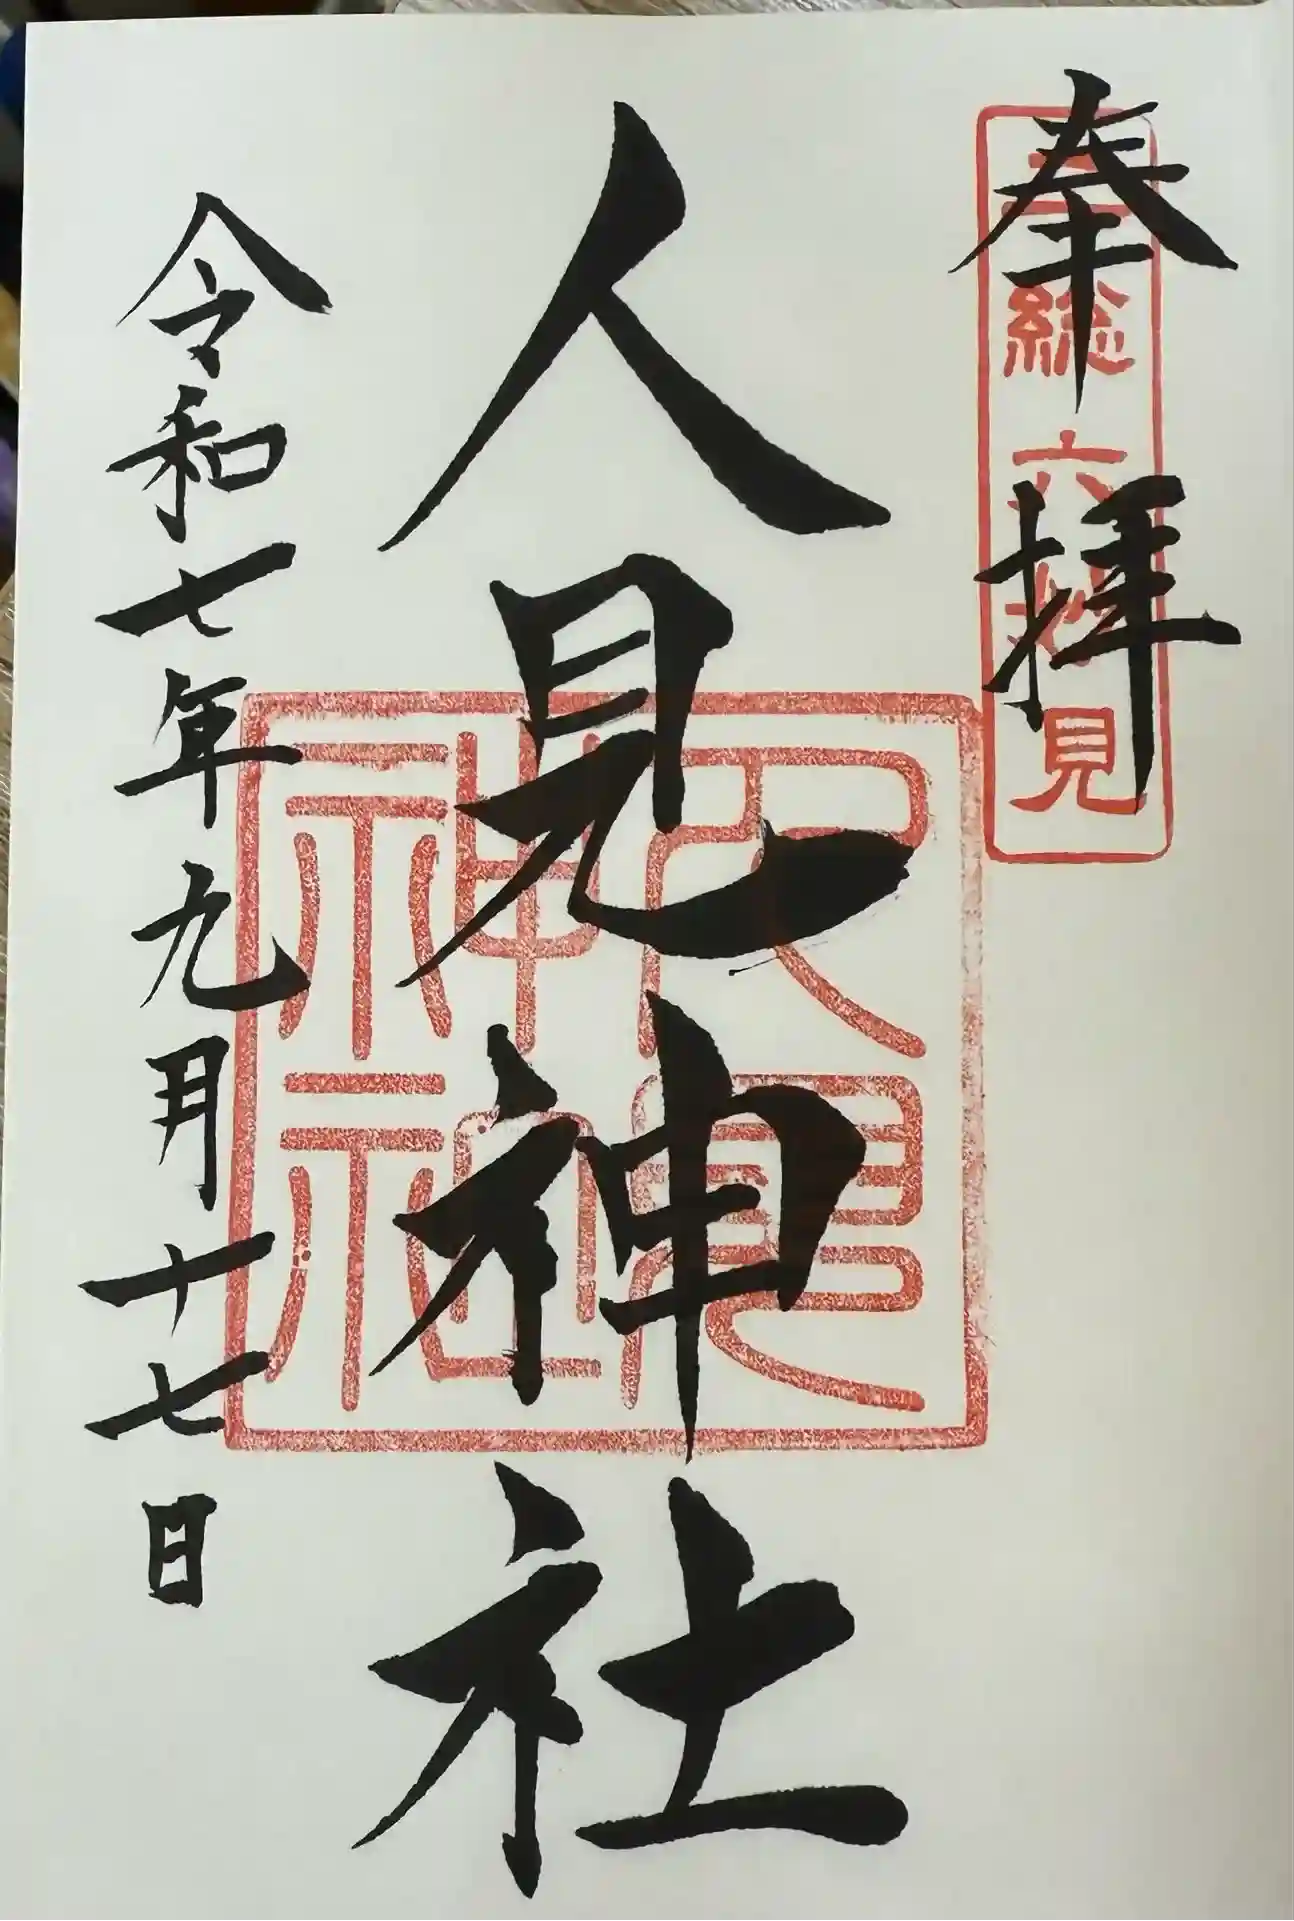 奉拝
二総六妙見
人見神社
人見
神社
令和七年九月十七日